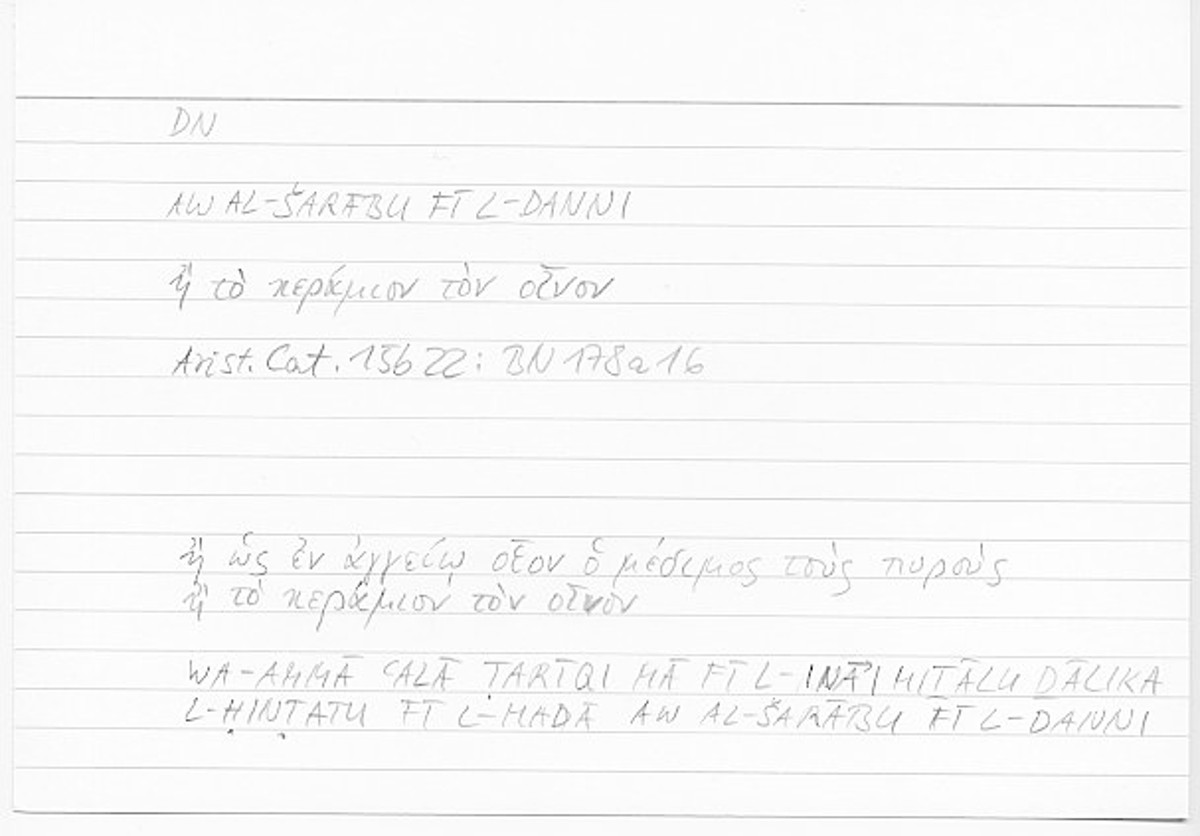 DN
AW AL-ŠARĀBU FĪ L-DANNI
ἢ τὸ κεράμιον τὸν οἶνον
Arist. Cat. 15b22: BN 178a16
ἢ ὡς ἐν ἀγγείῳ οἷον ὁ μέδιμος τοὺς πυροὺς
ἢ τὸ κεράμιον τὸν οἶνον
WA-AMMĀ ʿALĀ ṬARĪQI MĀ FĪ L-INĀʾI MIṮĀLU ḎĀLIKA
L-ḤINṬATU FĪ L-MADĀ AW AL-ŠARĀBU FĪ L-DANNI